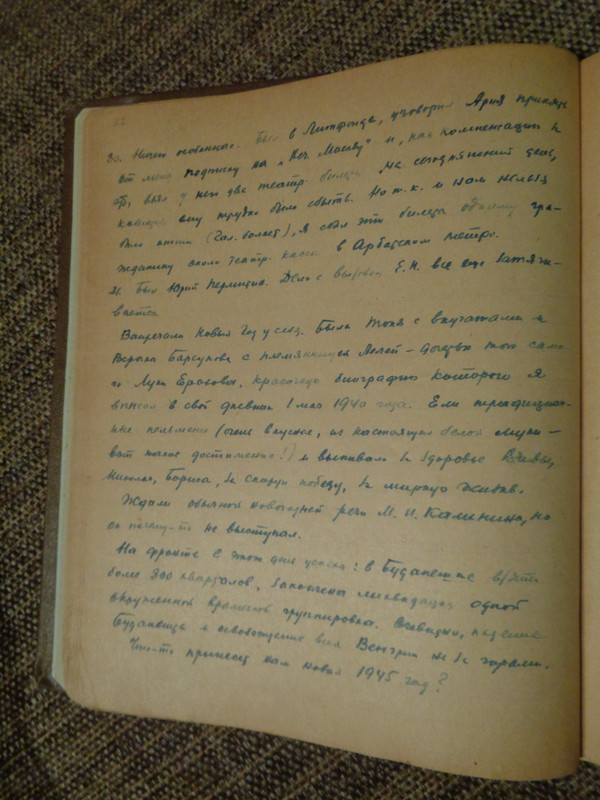 22
30. Ничего особенного. Был в Литфонде, уговорил Ария принять
от меня подписку на „Веч. Москву" и, как компенсацию к
взял у него две театр. билета на сегодняшний день,
которые ему трудно было сбыть. Но т. к. и нам нельзя
было итти (Гал. болеет), я сбыл эти билеты одному гра-
жданину около театр. кассы в Арбатском метро.
31. Был Юрий Пермитин. Дело с вызовом Е. Н. все еще затяги-
вается.
Встречали Новый Год у себя. Были с внучатами и
Верочка Барсукова с племянницей Лелей – дочерью того само-
го Луки Ерофеева, красочную биографию которого я
вписал в свой дневник 1 мая 1940 года. Ели традицион-
ные пельмени (очень вкусные, из настоящей белой муки –
вот какое достижение!) и выпивали за здоровье Вивы,
Николая, Бориса, за скорую победу, за мирную жизнь.
Ждали обычной новогодней речи М. И. Калинина, но
он почему-то не выступал.
На фронте в этот день успехи: в Будапеште взято
более 300 кварталов, закончена ликвидация одной
окруженной вражеской группировки. Очевидно, падение
Будапешта и освобождение всей Венгрии не за горами.
Что-то принесет нам новый 1945 год?